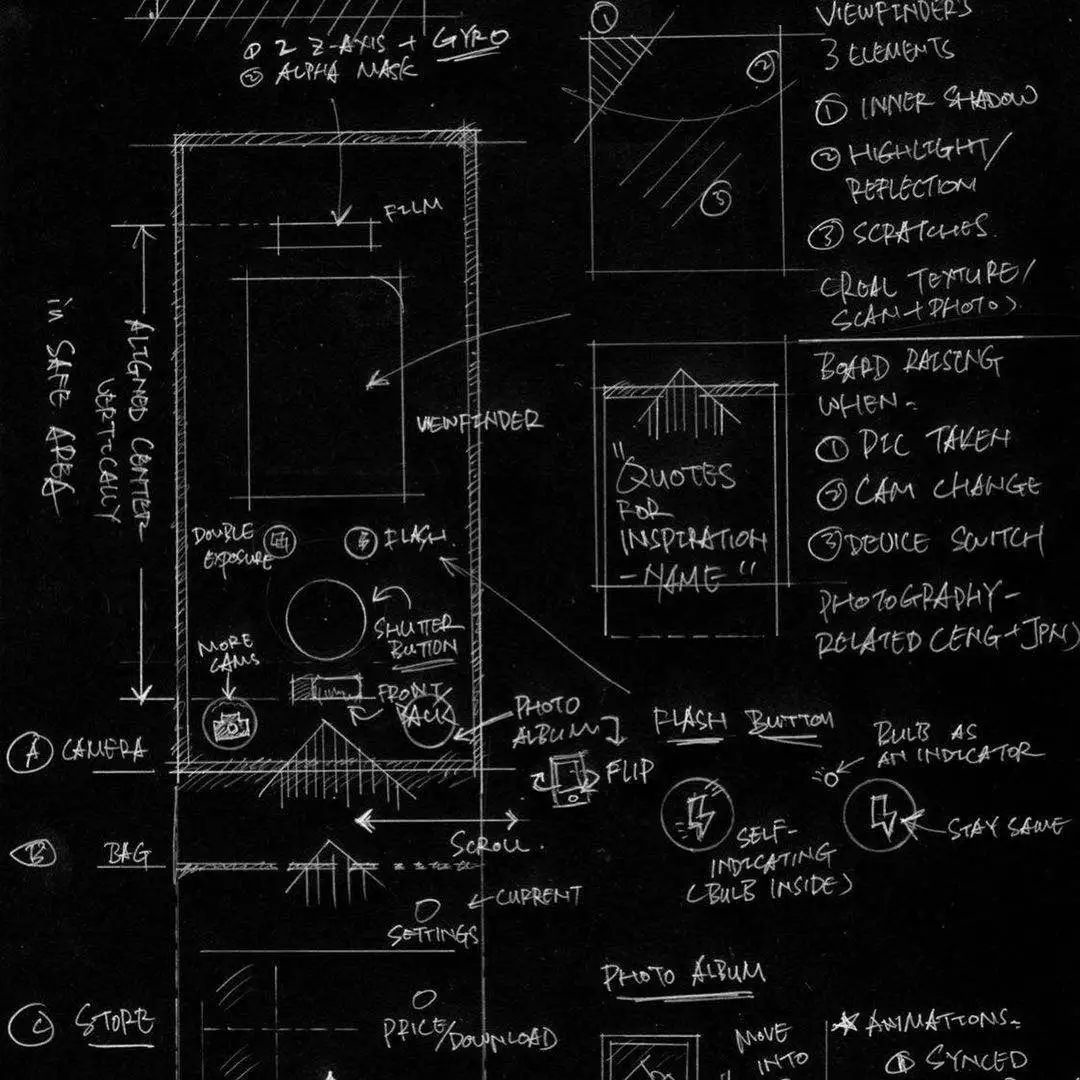 ① 2 Z-AXIS + GYRO
② ALPHA MASK
FILM
ALIGNED CENTER
VERTICALLY
in SAFE AREA
VIEWFINDER
DOUBLE
EXPOSURE
FLASH.
SHUTTER
BUTTON
MORE
CAMS
FRONT
BACK
PHOTO
ALBUM
FLIP
Ⓐ CAMERA
SCROLL.
Ⓑ BAG
CURRENT
SETTINGS
Ⓒ STORE
PRICE/DOWNLOAD
①
②
③
VIEWFINDERS
3 ELEMENTS
① INNER SHADOW
② HIGHLIGHT/
REFLECTION
③ SCRATCHES.
(REAL TEXTURE/
SCAN+PHOTO)
"QUOTES
FOR
INSPIRATION
-NAME"
BOARD RAISING
WHEN-
① PIC TAKEN
② CAM CHANGE
③ DEVICE SWITCH
PHOTOGRAPHY-
RELATED (ENG+JPN)
FLASH BUTTON
BULB AS
AN INDICATOR
STAY SAME
SELF-
INDICATING
(BULB INSIDE)
PHOTO ALBUM
MOVE
INTO
* ANIMATIONS-
① SYNCED